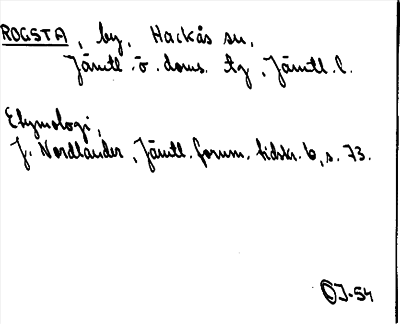 ROGSTA, by, Hackås sn,
Jämtl. ö. doms. tg, Jämtl. l.
Etymologi,
J. Nordlander, Jämtl. fornm. tidskr. 6, s. 73.
J-54